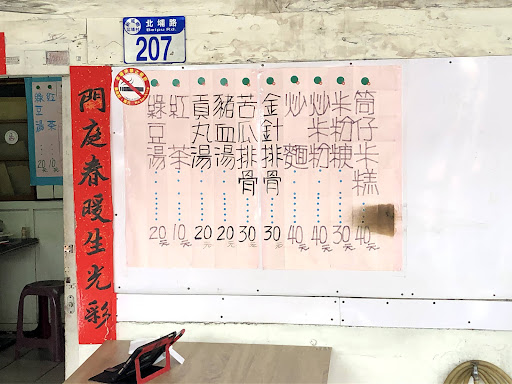 北埔路
Beipu Rd.
207
筒仔米糕 40元
米粉粳 30元
炒米粉 40元
炒麵 40元
金針排骨 30元
苦瓜排骨 30元
豬血湯 20元
貢丸湯 20元
紅茶 10元
綠豆湯 20元
門庭春暖生光彩
紅茶 10元
綠豆湯 20元